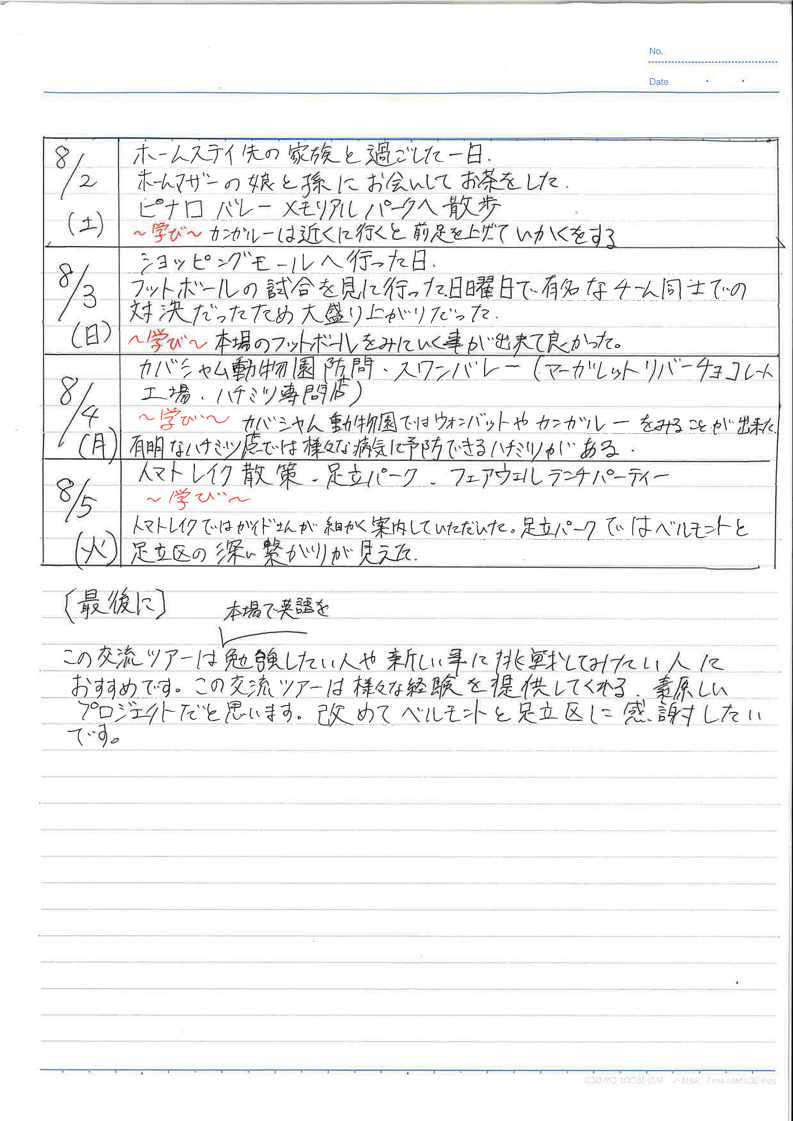 No.
Date
8/2
(土)
ホームステイ先の家族と過ごした一日.
ホームマザーの娘と孫にお会いしてお茶をした.
ピナロバレーメモリアルパークへ散歩
〜学び〜 カンガルーは近くに行くと前足を上げていかくをする
8/3
(日)
ショッピングモールへ行った日.
フットボールの試合を見に行った.日曜日で有名なチーム同士での
対決だったため大盛り上がりだった.
〜学び〜 本場のフットボールをみていく事が出来て良かった。
8/4
(月)
カバシャム動物園訪問・スワンバレー(マーガレットリバーチョコレート
工場・ハチミツ専門店)
〜学び〜 カバシャム動物園ではウォンバットやカンガルーをみることが出来た.
有明なハチミツ店では様々な病気に予防できるハチミツがある.
8/5
(火)
トマトレイク散策・足立パーク・フェアウェルランチパーティー
〜学び〜
トマトレイクではガイドさんが細かく案内していただいた.足立パークではベルモントと
足立区の深い繋がりが見えた.
[最後に]
本場で英語を
この交流ツアーは勉強したい人や新しい事に挑戦してみたい人に
おすすめです。この交流ツアーは様々な経験を提供してくれる.素原しい
プロジェクトだと思います。改めてベルモントと足立区に感謝したい
です。